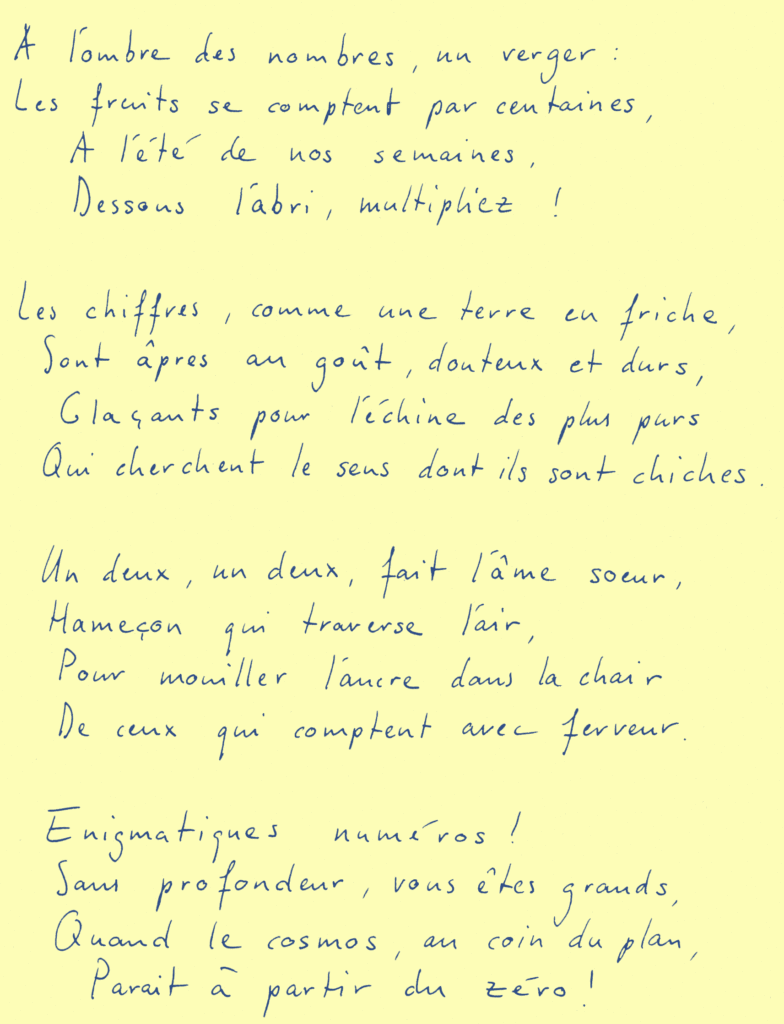 A l'ombre des nombres, un verger :
Les fruits se comptent par centaines,
A l'été de nos semaines,
Dessous l'abri, multipliez !
Les chiffres, comme une terre en friche,
Sont âpres au goût, douteux et durs,
Glaçants pour l'échine des plus purs
Qui cherchent le sens dont ils sont chiches.
Un deux, un deux, fait l'âme soeur,
Hameçon qui traverse l'air,
Pour mouiller l'ancre dans la chair
De ceux qui comptent avec ferveur.
Enigmatiques numéros !
Sans profondeur, vous êtes grands,
Quand le cosmos, au coin du plan,
Parait à partir du zéro !